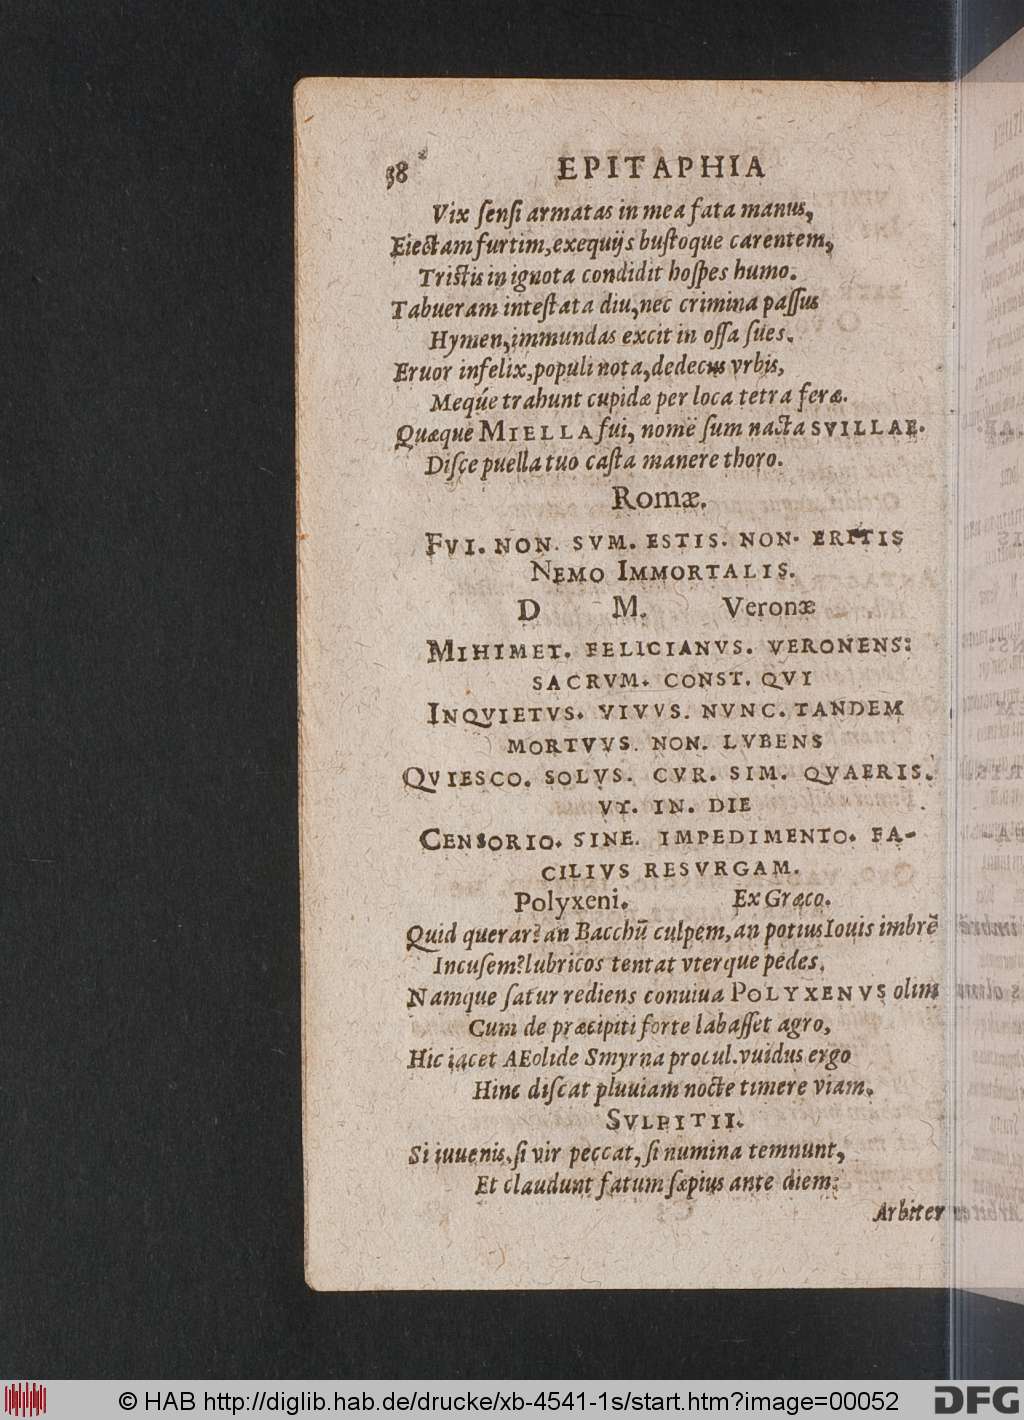 38 EPITAPHIA
Vix ſenſi armatas in mea fata manus,
Eiectam furtim, exequijs buſtoque carentem,
Triſtis in ignota condidit hoſpes humo.
Tabueram inteſtata diu, nec crimina paſſus
Hymen, immundas excit in oſſa ſues.
Eruor infelix, populi nota, dedecus vrbis,
Meq́ue trahunt cupidæ per loca tetra feræ.
Quæque MIELLA fui, nomẽ ſum nacta SVILLAE.
Diſce puella tuo caſta manere thoro.
Romæ.
FVI. NON. SVM. ESTIS. NON. ERITIS
NEMO IMMORTALIS.
D M. Veronæ
MIHIMET. FELICIANVS. VERONENS:
SACRVM. CONST. QVI
INQVIETVS. VIVVS. NVNC. TANDEM
MORTVVS. NON. LVBENS
QVIESCO. SOLVS. CVR. SIM. QVAERIS.
VT. IN. DIE
CENSORIO. SINE. IMPEDIMENTO. FA-
CILIVS RESVRGAM.
Polyxeni. Ex Græco.
Quid querar? an Bacchũ culpem, an potius Iouis imbrẽ
Incuſem? lubricos tentat vterque pedes.
Namque ſatur rediens conuiua POLYXENVS olim
Cum de præcipiti forte labaſſet agro,
Hic iacet AEolide Smyrna procul. vuidus ergo
Hinc diſcat pluuiam nocte timere viam.
SVLPITII.
Si iuuenis, ſi vir peccat, ſi numina temnunt,
Et claudunt fatum ſæpius ante diem:
Arbiter
© HAB http://diglib.hab.de/drucke/xb-4541-1s/start.htm?image=00052 DFG